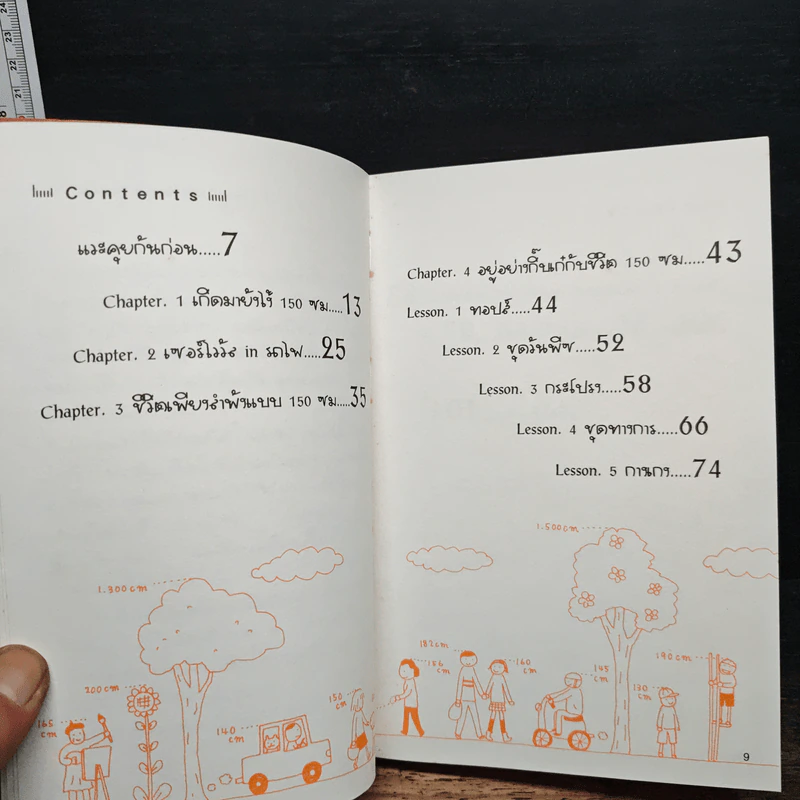 Contents
แวะคุยกันก่อน.....7
Chapter. 1 เกิดมายังไง้ 150 ซม.....13
Chapter. 2 เซอร์ไวว้ส in รถไฟ.....25
Chapter. 3 ชีวิตเพียงลำพังแบบ 150 ซม.....35
Chapter. 4 อยู่อย่างกิ๊บเก๋กับชีวิต 150 ซม.....43
Lesson. 1 ทอปส์.....44
Lesson. 2 ชุดวันพีซ.....52
Lesson. 3 กระโปรง.....58
Lesson. 4 ชุดทางการ.....66
Lesson. 5 กางเกง.....74
1.300cm
200cm
165 cm
140 cm
150 cm
1.500cm
182cm
156 cm
160 cm
145 cm
130 cm
190cm
9
24
23
22
21